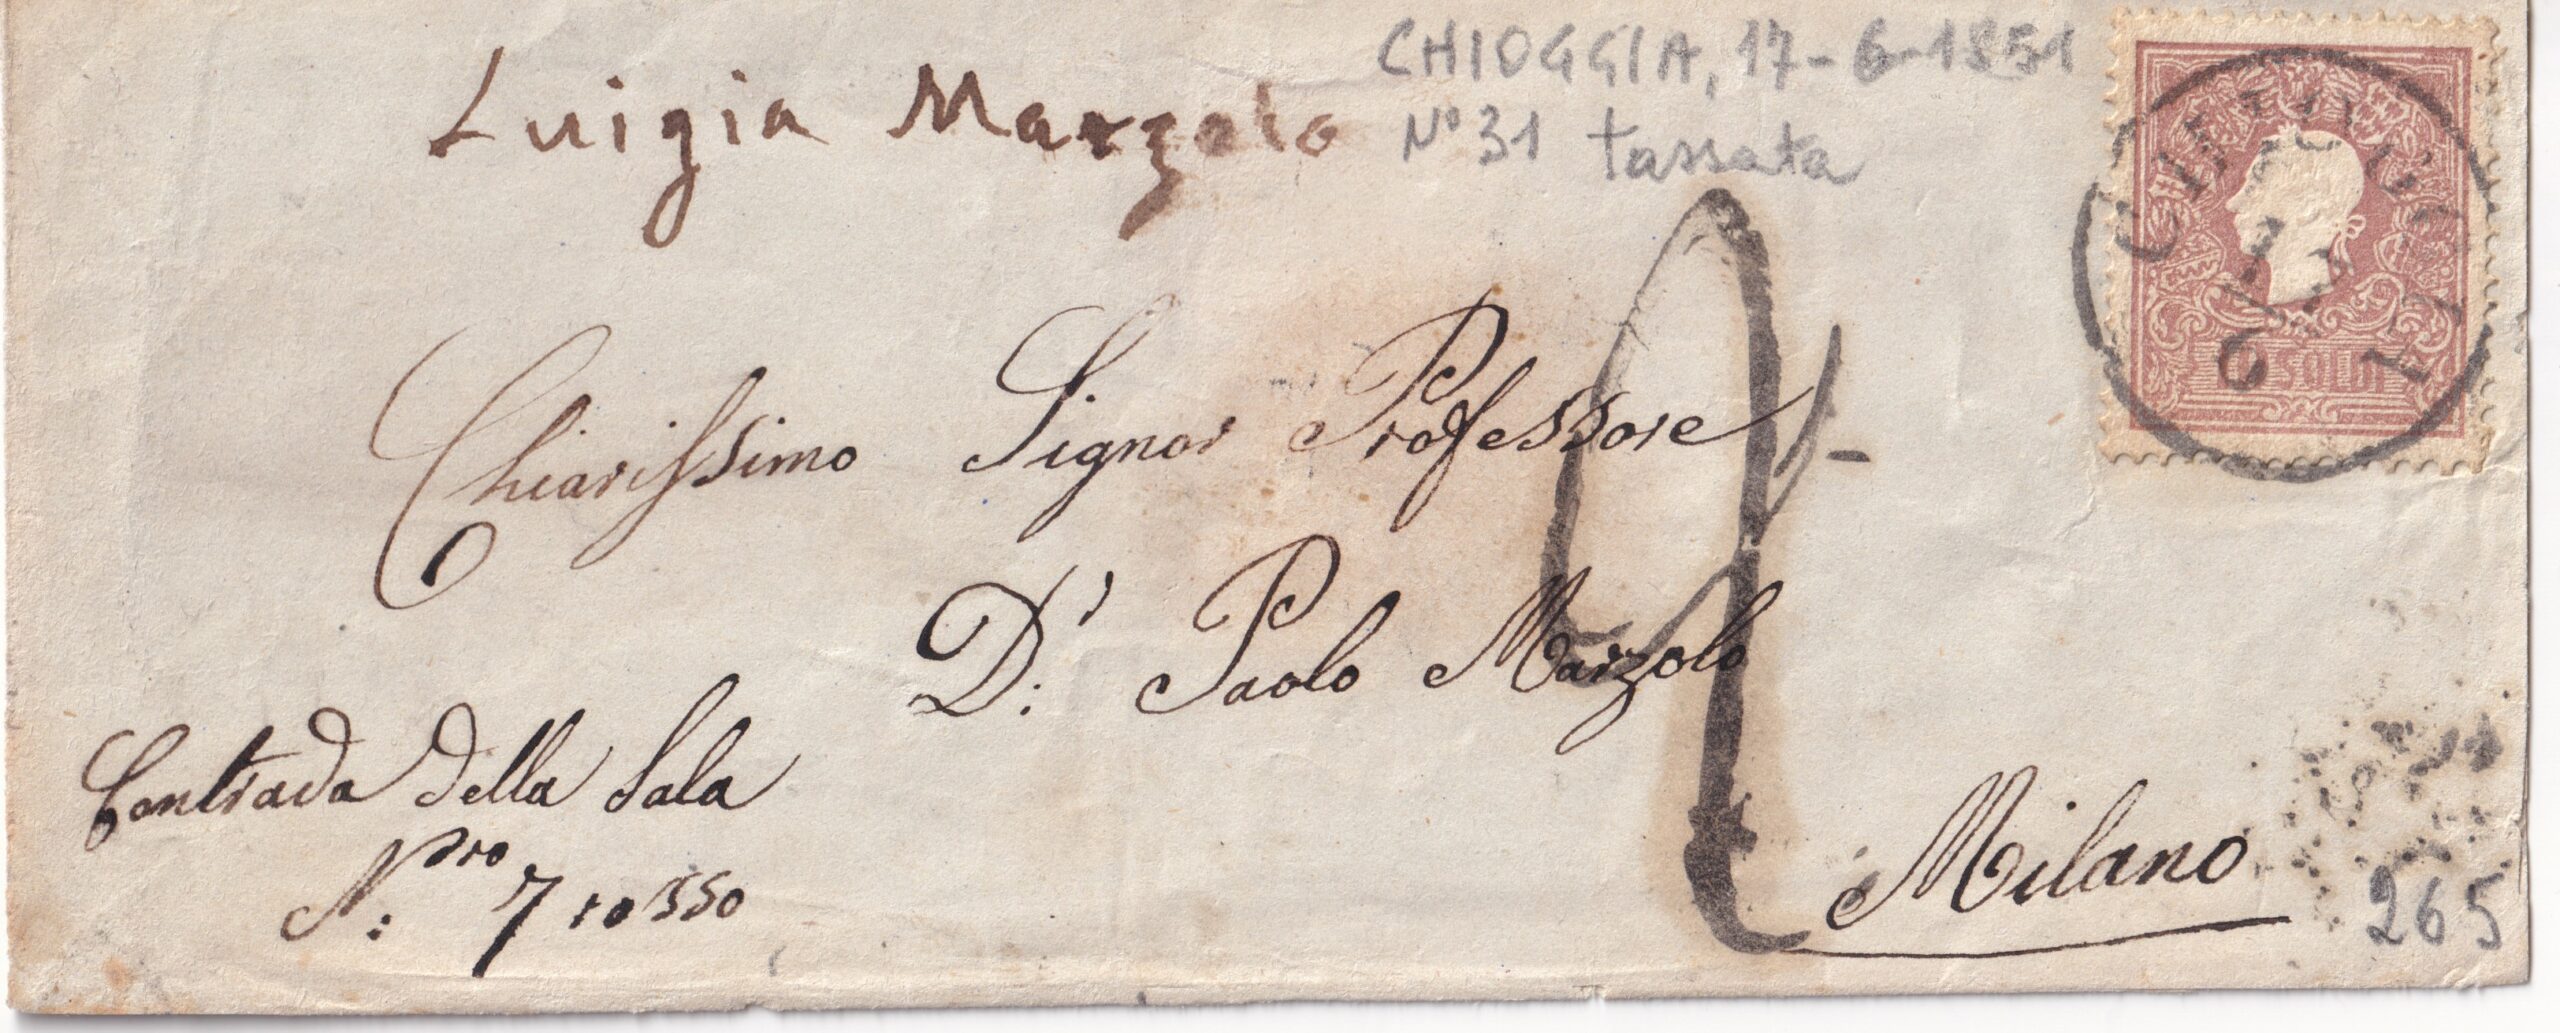 CHIOGGIA, 17-6-1851
Luigia Marzolo
N° 31 tassata
CHIOGGIA
10 SOLDI
Chiarissimo Signor Professore
Dr: Paolo Marzolo
Contrada della Sala
Nro: 7 rosso
Milano
265